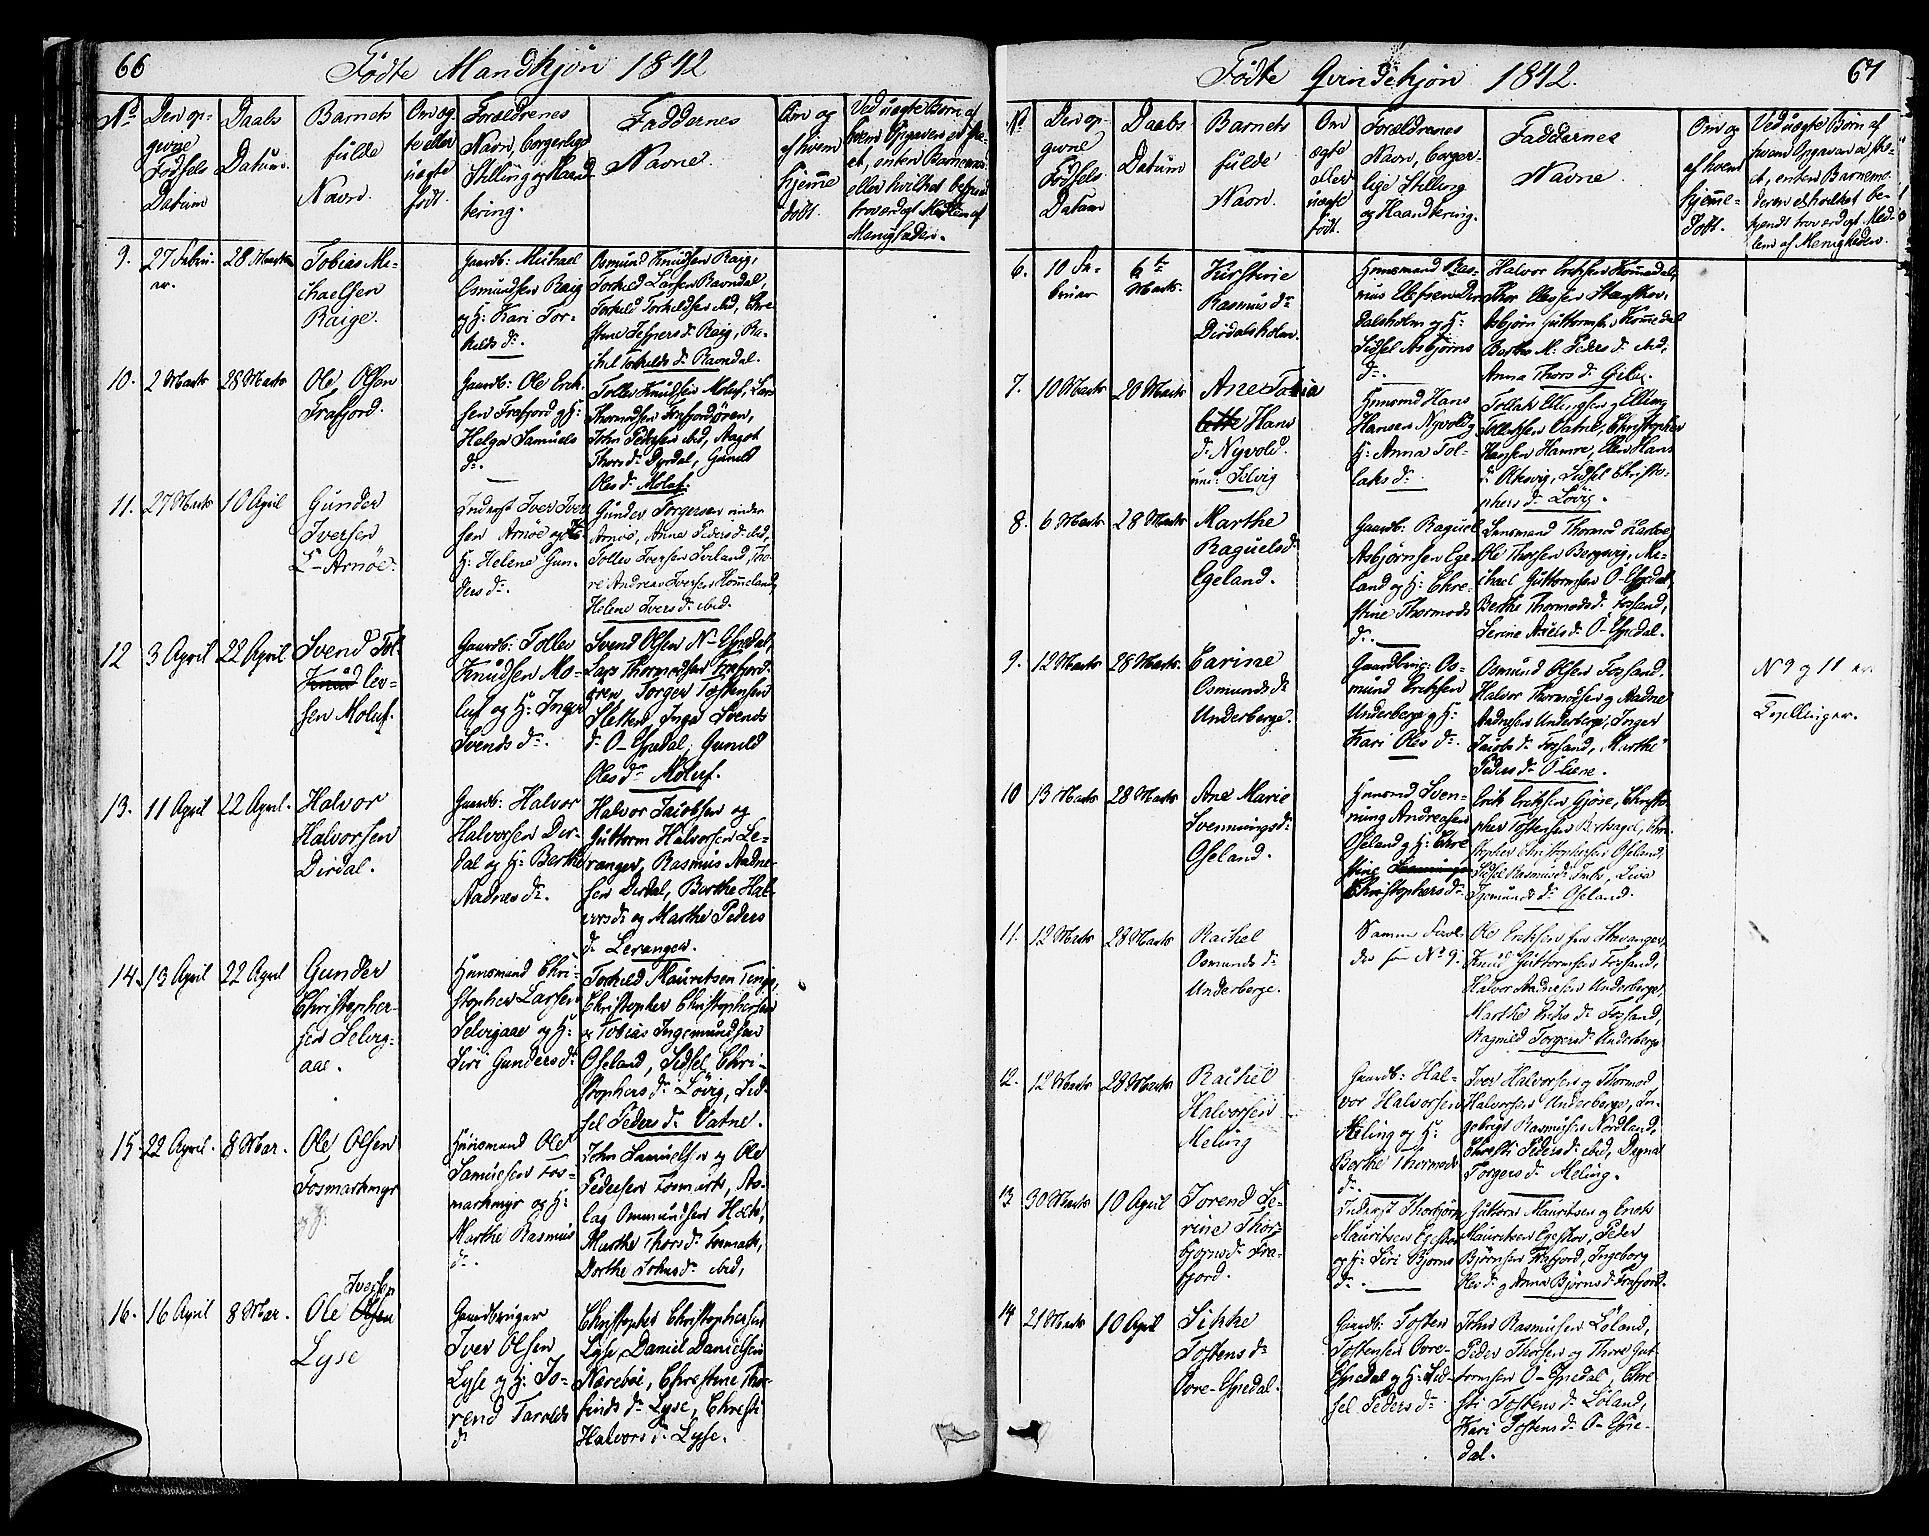 66
Födte Mandkjön 1842
No
Den op-
givne
Födsels
Datum
Daabs
Datum.
Barnets
fulde
Navn.
Om æg-
te eller
uægte
födt.
Forældrenes
Navn, borgerlige
Stilling og Haand-
tering.
Faddernes
Navne.
Om og
af hvem
hjemme
döbt.
Ved uægte Børn af
hvem Opgaven er ske-
et, enten Barnemo.
eller hvilket bekjendt
troværdigt Medlem af
Menigheden.
9.
27 Febru-
ar.
28 Marts
Tobias Mi-
chaelsen
Raige.
Gaardb: Michael
Osmundsen Raig
og H: Kari Tor-
kilds Dr.
Osmund Knudsen Raig,
Torkild Larsen Ravndal,
Torkild Torkildsen ibid, Chri-
stine Jespers Dr Raig, Ra-
chel Torkilds Dr Ravndal.
10.
2 Marts
28 Marts
Ole Olsen
Frafjord.
Gaardb: Ole Erik-
sen Frafjord og H:
Helga Samuels
Dr.
Tollev Knudsen Moluf, Lars
Thormodsen Frafjordøren,
John Pedersen ibid, Aagot
Thors Dr Dyrdal, Gunild
Oles Dr Moluf.
11.
27 Marts
10 April
Gunder
Iversen
L- Arnöe.
Inderst Iver Iver-
sen Arnöe og
H: Helene Gun-
ders Dr.
Gunder Torgersen
Arnöe, Anne Peders Dr ibid,
Tollev Iversen
Andreas Iversen Kommeland,
Helene Ivers Dr ibid.
12
3 April
22 April
Svend Tol-
Knud lev-
sen Moluf.
Gaardb: Tollev
Knudsen Mo-
luf og H: Inger
Svends Dr.
Svend Olsen N- Espedal,
Lars Thormodsen Frafjord-
øren, Torger Tostensen
Sletten, Inger Svends
Dr O- Espedal, Gunild
Oles Dr Moluf.
13.
11 April
22 April.
Halvor
Halvorsen
Dirdal.
Gaardb: Halvor
Halvorsen Dir-
dal og H: Berthe
Aadnes Dr.
Halvor Jacobsen og
Guttorm Halvorsen Le-
ranger, Rasmus Aadne-
sen Dirdal, Berthe Hal-
vors Dr og Marthe Peders
Dr Leranger.
14.
13 April
22 April
Gunder
Christopher-
sen Selvig-
aae.
Huusmand Chri-
stopher Larsen
Selvigaae og H:
Siri Gunders Dr
Torkild Mauritsen Tenge,
Christopher Christophersen
og Tobias Ingemundsen
Oseland, Sidsel Chri-
stophers Dr Lövig, Sid-
sel Peders Dr Vatne.
15.
22 April.
8 Mai.
Ole Olsen
Fosmarkmyr
Huusmand Ole
Samuelsen Fos-
markmyr og H:
Marthe Rasmus
Dr.
John Samuelsen og Ole
Pedersen Fosmark, As-
lag Ommundsen Holte,
Marthe Thors Dr Fosmark,
Dorthe Johns Dr ibid,
16.
16 April
8 Mai.
Iversen
Ole Olsen
Lyse
Gaardbruger
Iver Olsen
Lyse og H: To-
rend Tarolds
Dr
Christopher Christophersen
Lyse, Daniel Danielsen
Nærebøe, Christine Thor-
finds Dr Lyse, Christi
Halvors Dr Lyse.
67
Födte Qvindekjön 1842.
No
Den op-
givne
Födsels
Datum
Daabs
Datum
Barnets
fulde
Navn.
Om
ægte
eller
uægte
födt.
Forældrenes
Navn, borger-
lige Stilling
og Haandtering.
Faddernes
Navne.
Om og
af hvem
hjemme-
döbt.
Ved uægte Börn af
hvem Opgaven er ske-
et, enten Barnemo-
deren el hvilket be-
kjendt troværdigt Med-
lem af Menigheden.
6.
10 Fe-
bruar
6te
Marts.
Kirstine
Rasmus Dr
Dirdalsholm.
Huusmand Ras-
mus Elefsen Dir-
dalsholm og H:
Sidsel Asbjørns
Dr.
Halvor Eriksen Kommedal,
Thor Olessen
Asbjörn Guttormsen Kommedal
Berthe M. Peders Dr ibid,
Anna Thors Dr Gilje.
7.
10 Marts
20 Marts
Ane Tobia
Hans
Dr Nyvold.
Selvig
Huusmd Hans
Hansen Nyvold og
H: Anna Tol-
laks Dr
Tollak Ellingsen og Elling
Tollaksen Vatne, Christopher
Hansen Hamre, Elen Hans
Dr Oltesvig, Sidsel Christo-
phers Dr Lövig.
8.
6 Marts
28 Marts
Marthe
Raguels Dr
Egeland.
Gaardb: Raguel
Asbjørnsen Ege-
land og H: Chri-
stine Thormods
Dr.
Lensmand Thormod
Ole Thorsen Bergevig, Mi-
chael Guttormsen O- Espedal,
Berthe Thormods Dr Fossand,
Serine Axels Dr O- Espedal.
9.
12 Marts
28 Marts.
Carine
Osmunds Dr
Underberge.
Gaardbrug: Os-
mund Eriksen
Underberge og H:
Kari Oles Dr.
Osmund Olsen Fossand,
Halvor Thormodsen og Aadne
Aadnesen Underberge, Inger
Jacobs Dr Fossand, Marthe
Peders Dr O- Eiene.
No 9 og 11 er
Tvillinger.
10
13 Marts
28 Marts
Ane Marie
Svennings Dr
Oseland.
Huusmd Sven-
nung Andreasen
Oseland og H: Chri-
stine
Christophers Dr
Erik Eriksen Gjöse, Christo-
pher Tostensen Bersagel, Chri-
stopher Christophersen Oseland,
Sidsel Rasmus Dr
Ingemunds Dr Oseland.
11.
12 Marts
28 Marts
Rachel
Osmunds Dr
Underberge.
Samme Foræl-
dre som No 9.
Ole Eriksen fra Stavanger,
Knud Guttormsen Fossand,
Halvor Aadnesen Underberge,
Marthe Eriks Dr Fossand,
Ragnild Torgers Dr Underberge
12.
12 Marts
28 Marts
Rachel
Halvorsen
Meling
Gaardb: Hal-
vor Halvorsen
Meling og H:
Berthe Thormods
Dr.
Iver Halvorsen og Thormod
Halvorsen Underberge, In-
gebrigt Rasmusen Nordland,
Christi Peders Dr ibid, Dagna
Torgers Dr Meling.
13
30 Marts
10 April
Torend Se-
rine Thor-
bjørns Dr Fra-
fjord.
Inderst Thorbjørn
Mauritsen Egeskov
og H: Siri Bjørns
Dr.
Guttorm Mauritsen og Enok
Mauritsen Egeskov, Peder
Bjørnsen Frafjord, Ingeborg
Oles Dr og Anna Bjørns Dr Frafjord.
14
21 Marts
10 April
Sikke
Tostens Dr
Övre-Espedal.
Gaardb: Tosten
Tostensen Övre-
Espedal og H: Sid-
sel Peders Dr
John Rasmusen Löland,
Peder Thorsen og Thore Gut-
tormsen O- Espedal, Chri-
sti Tostens Dr Löland,
Kari Tostens Dr O- Espe-
dal.